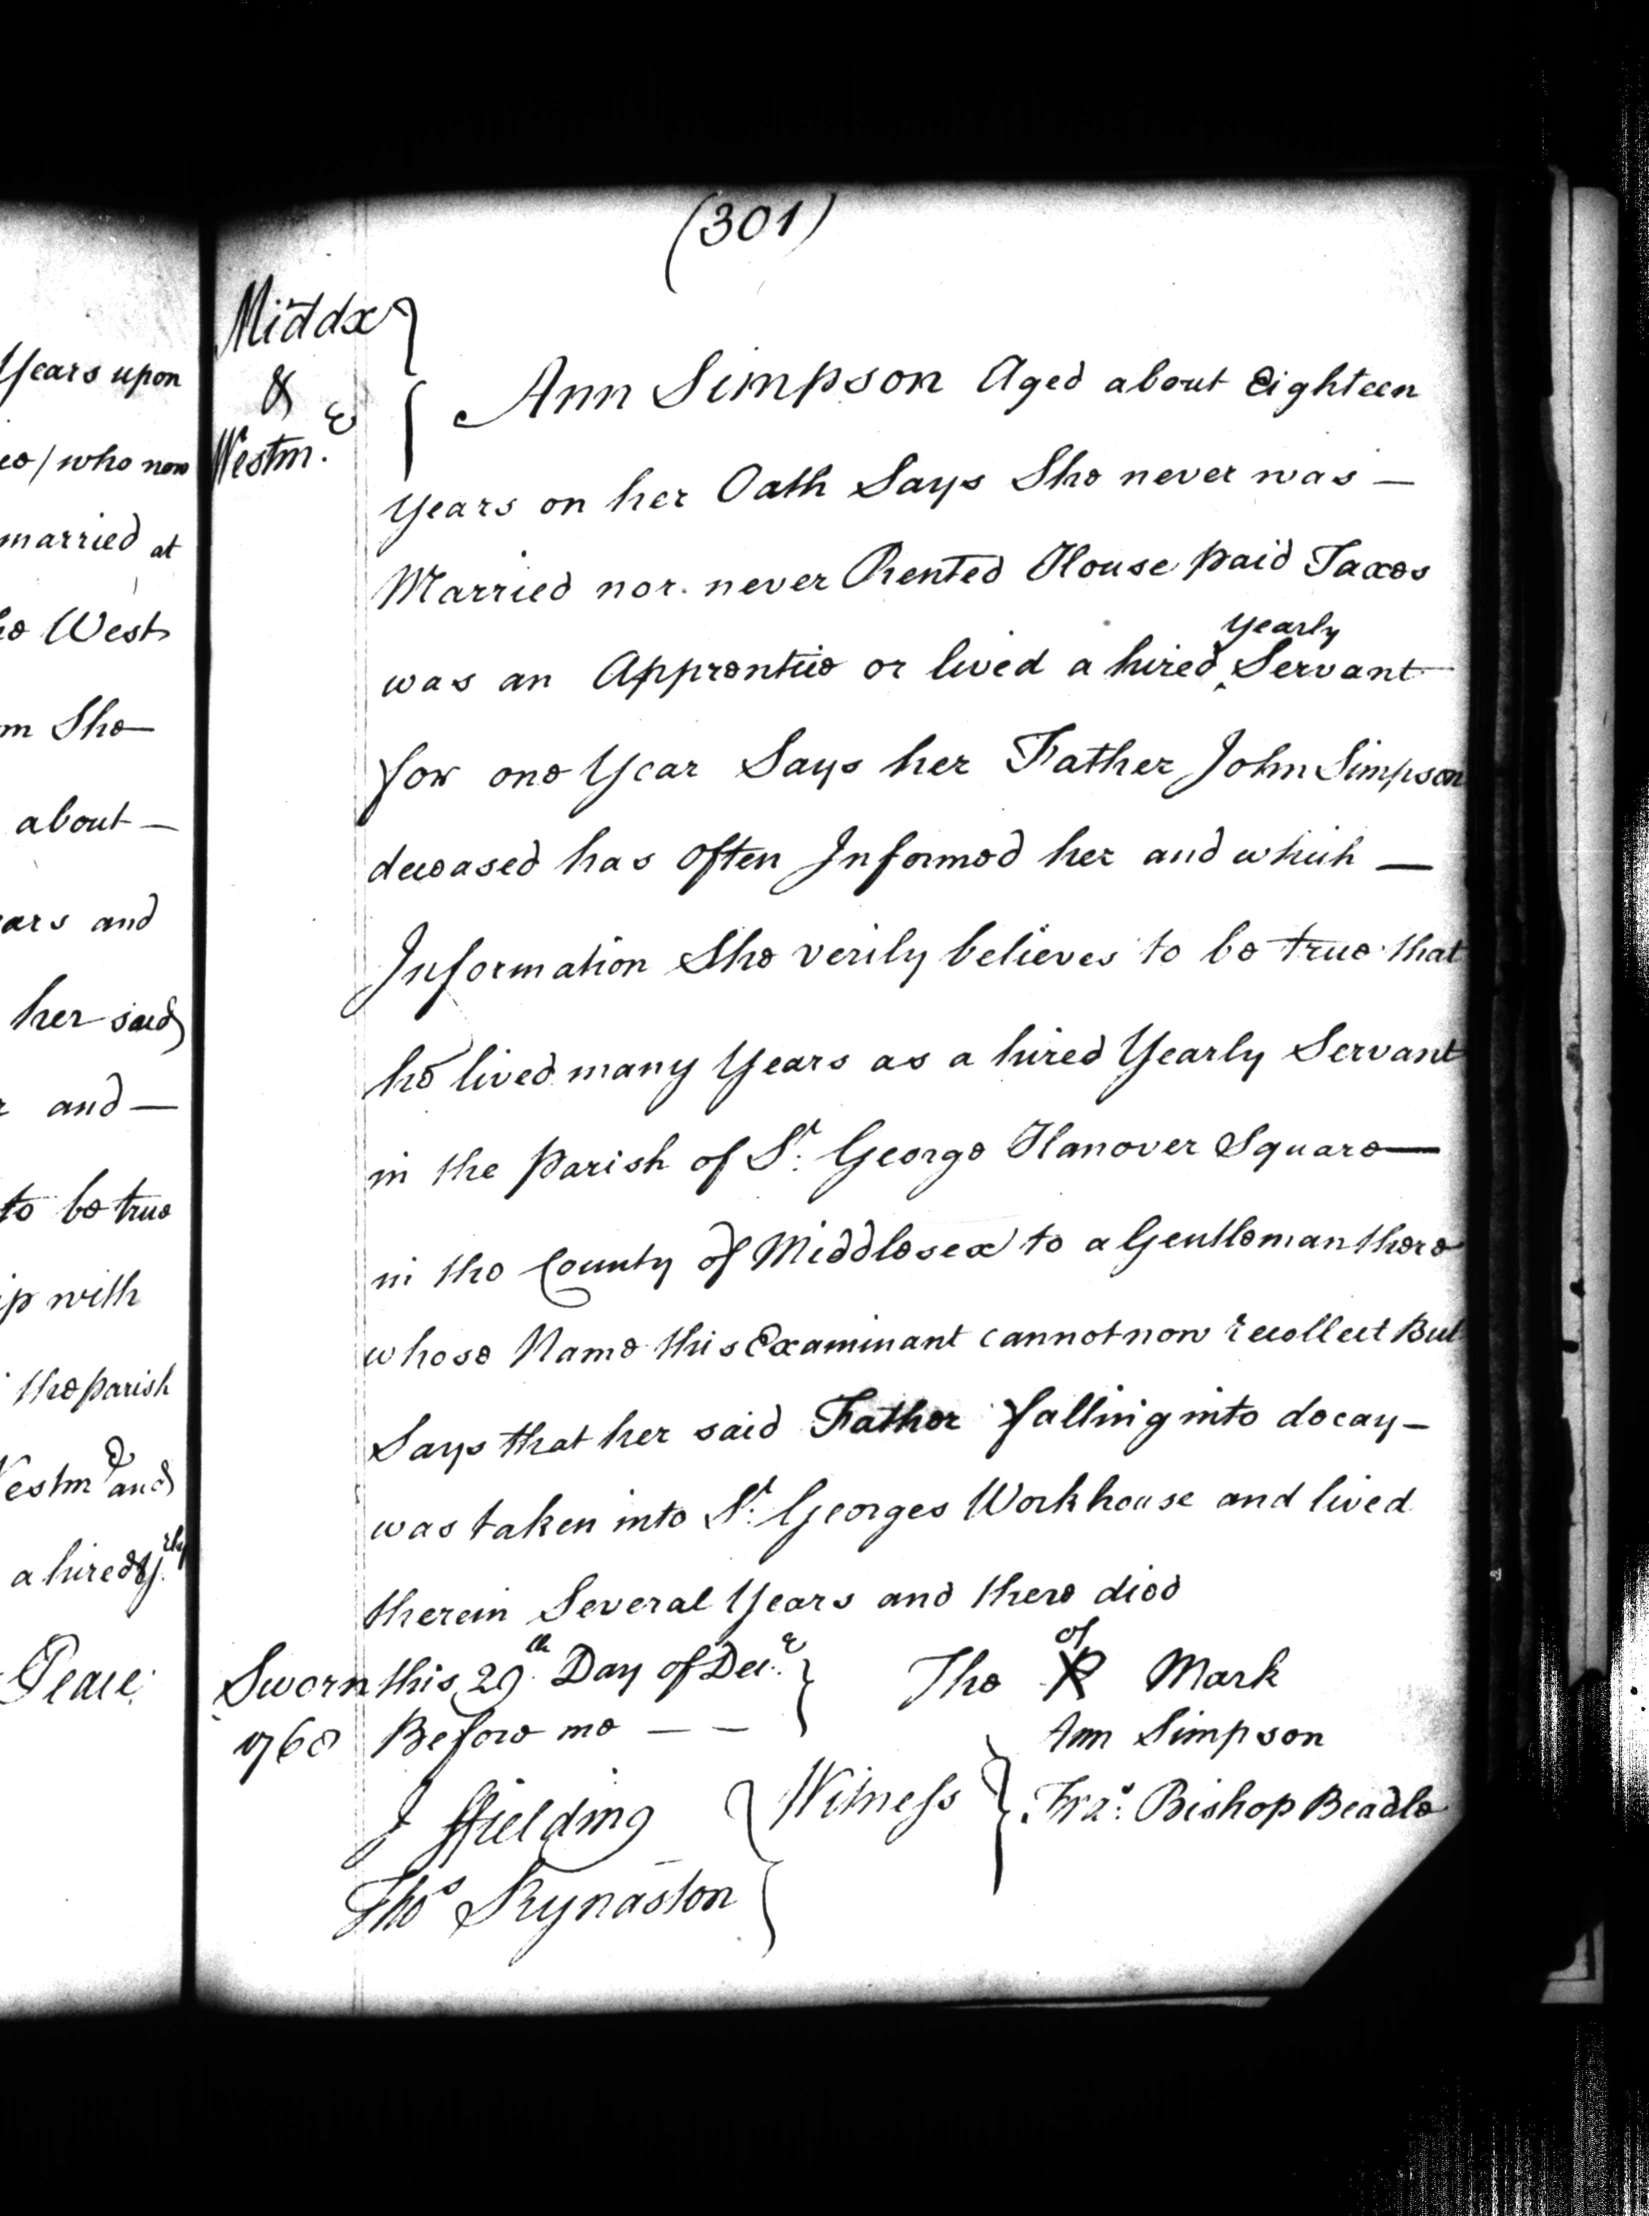 (301)
Middx
&
Westm.r
Ann Simpson Aged about Eighteen
Years on her Oath Says She never was —
Married nor never Rented House paid Taxes
yearly
was an Apprentice or lived a hired ‸ Servant
for one Year Says her Father John Simpson
deceased has often Informed her and which —
Information She verily believes to be true that
he lived many Years as a hired Yearly Servant
in the parish of St. George Hanover Square —
in the County of Middlesex to a Gentleman there
whose Name this Examinant cannot now recollect But
Says that her said Father falling into decay —
was taken into St. Georges Workhouse and lived
therein Several Years and there died
Sworn this 29th Day of Decr.
1768 Before me — —
J Ffielding
Thos Kynaston
Witness
The X Mark
of
Ann Simpson
Fras. Bishop Beadle
Years upon
who now
married at
West
She
about —
and
her said
and —
to be true
with
the parish
and
a hired
Peace